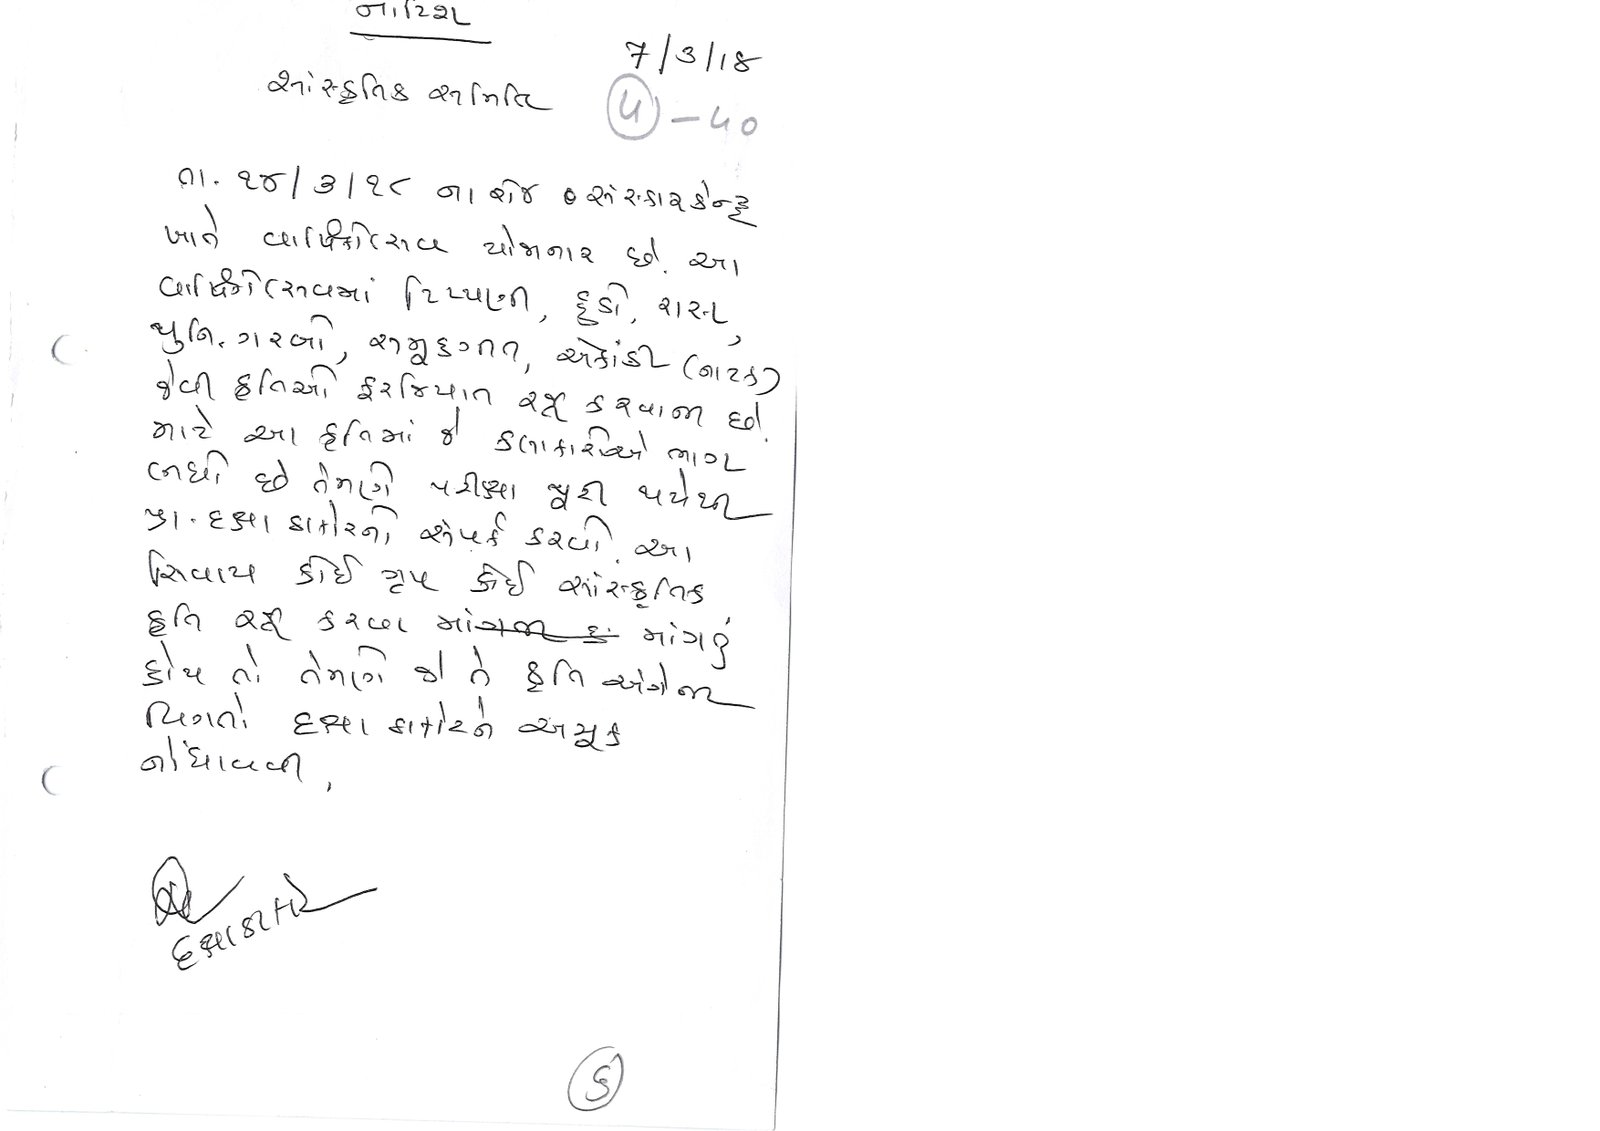 નોટિશ
7/3/18
સાંસ્કૃતિક સમિતિ
૫ - ૫૦
તા. ૧૪/૩/૧૮ ના રોજ સંસ્કારકેન્દ્ર
ખાતે વાર્ષિકોત્સવ યોજનાર છે. આ
વાર્ષિકોત્સવમાં ટિપ્પણી, હુડો, રાસ,
યુનિ. ગરબો, સમૂહગીત, એકાંકી (નાટક)
જેવી કૃતિઓ ફરજિયાત રજૂ કરવાના છે.
માટે આ કૃતિમાં જે કલાકારોએ ભાગ
લીધો છે તેમણે પરીક્ષા પૂરી થયેથી
પ્રા. દક્ષા સંપર્ક કરવો. આ
સિવાય કોઈ ગૃપ કોઈ સાંસ્કૃતિક
કૃતિ રજૂ કરવા માંગતુ
હોય તો તેમણે જે તે કૃતિ અંગેની
વિગતો દક્ષા અચૂક
નોંધાવવી.
દક્ષા